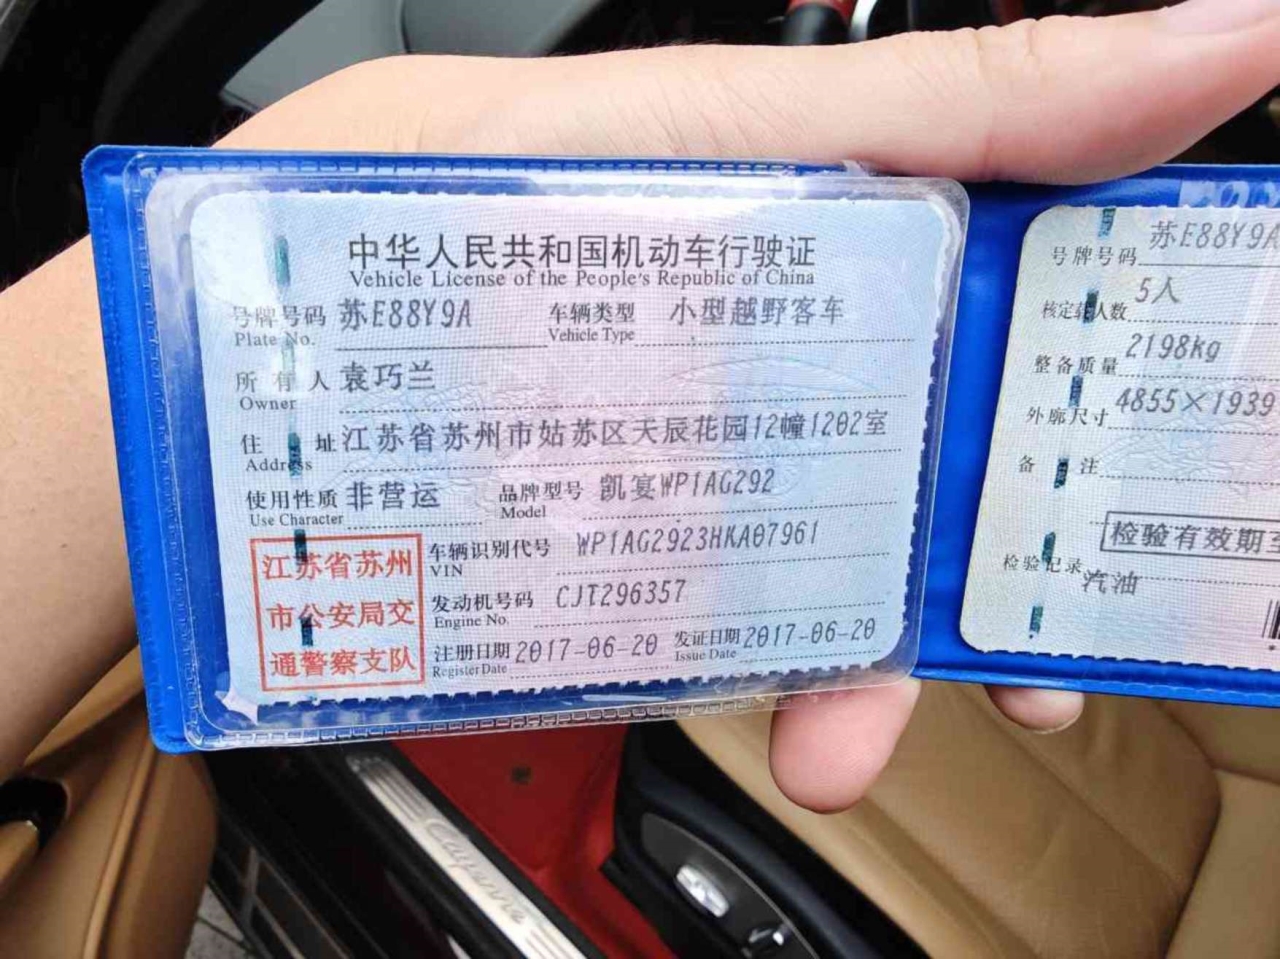 中华人民共和国机动车行驶证
Vehicle License of the People's Republic of China
号牌号码 苏E88Y9A 车辆类型 小型越野客车
Plate No. Vehicle Type
所有人 袁巧兰
Owner
住址 江苏省苏州市姑苏区天辰花园12幢1202室
Address
使用性质 非营运 品牌型号 凯宴WP1AG292
Use Character Model
江苏省苏州
市公安局交
通警察支队
车辆识别代号 WP1AG2923HKA07961
VIN
发动机号码 CJT296357
Engine No.
注册日期 2017-06-20 发证日期 2017-06-20
Register Date Issue Date
号牌号码 苏E88Y9A
核定载人数 5人
整备质量 2198kg
外廓尺寸 4855×1939
备注
检验有效期至
检验记录
汽油
Cayenne